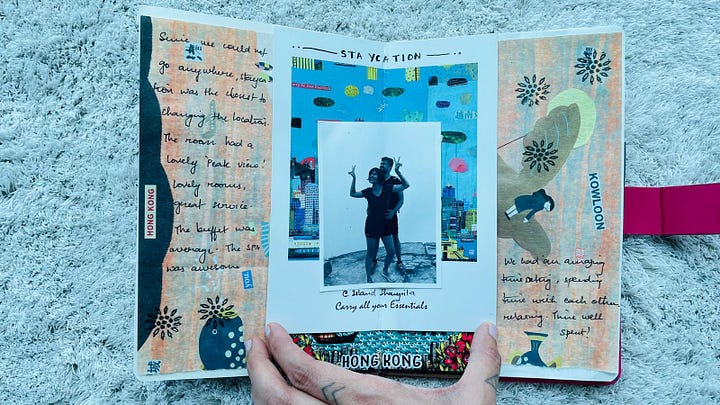 Since we could not
go anywhere, stayca
tion was the closest to
changing the location.
The room had a
lovely Peak view!
lovely rooms,
great service.
The buffet was
average. The spa
was awesome
HONG KONG
STAYCATION
@ Island Shangrila
Carry all your Essentials
HONG KONG
KOWLOON
We had an amazing
time eating, spending
time with each other
relaxing. Time well
spent!